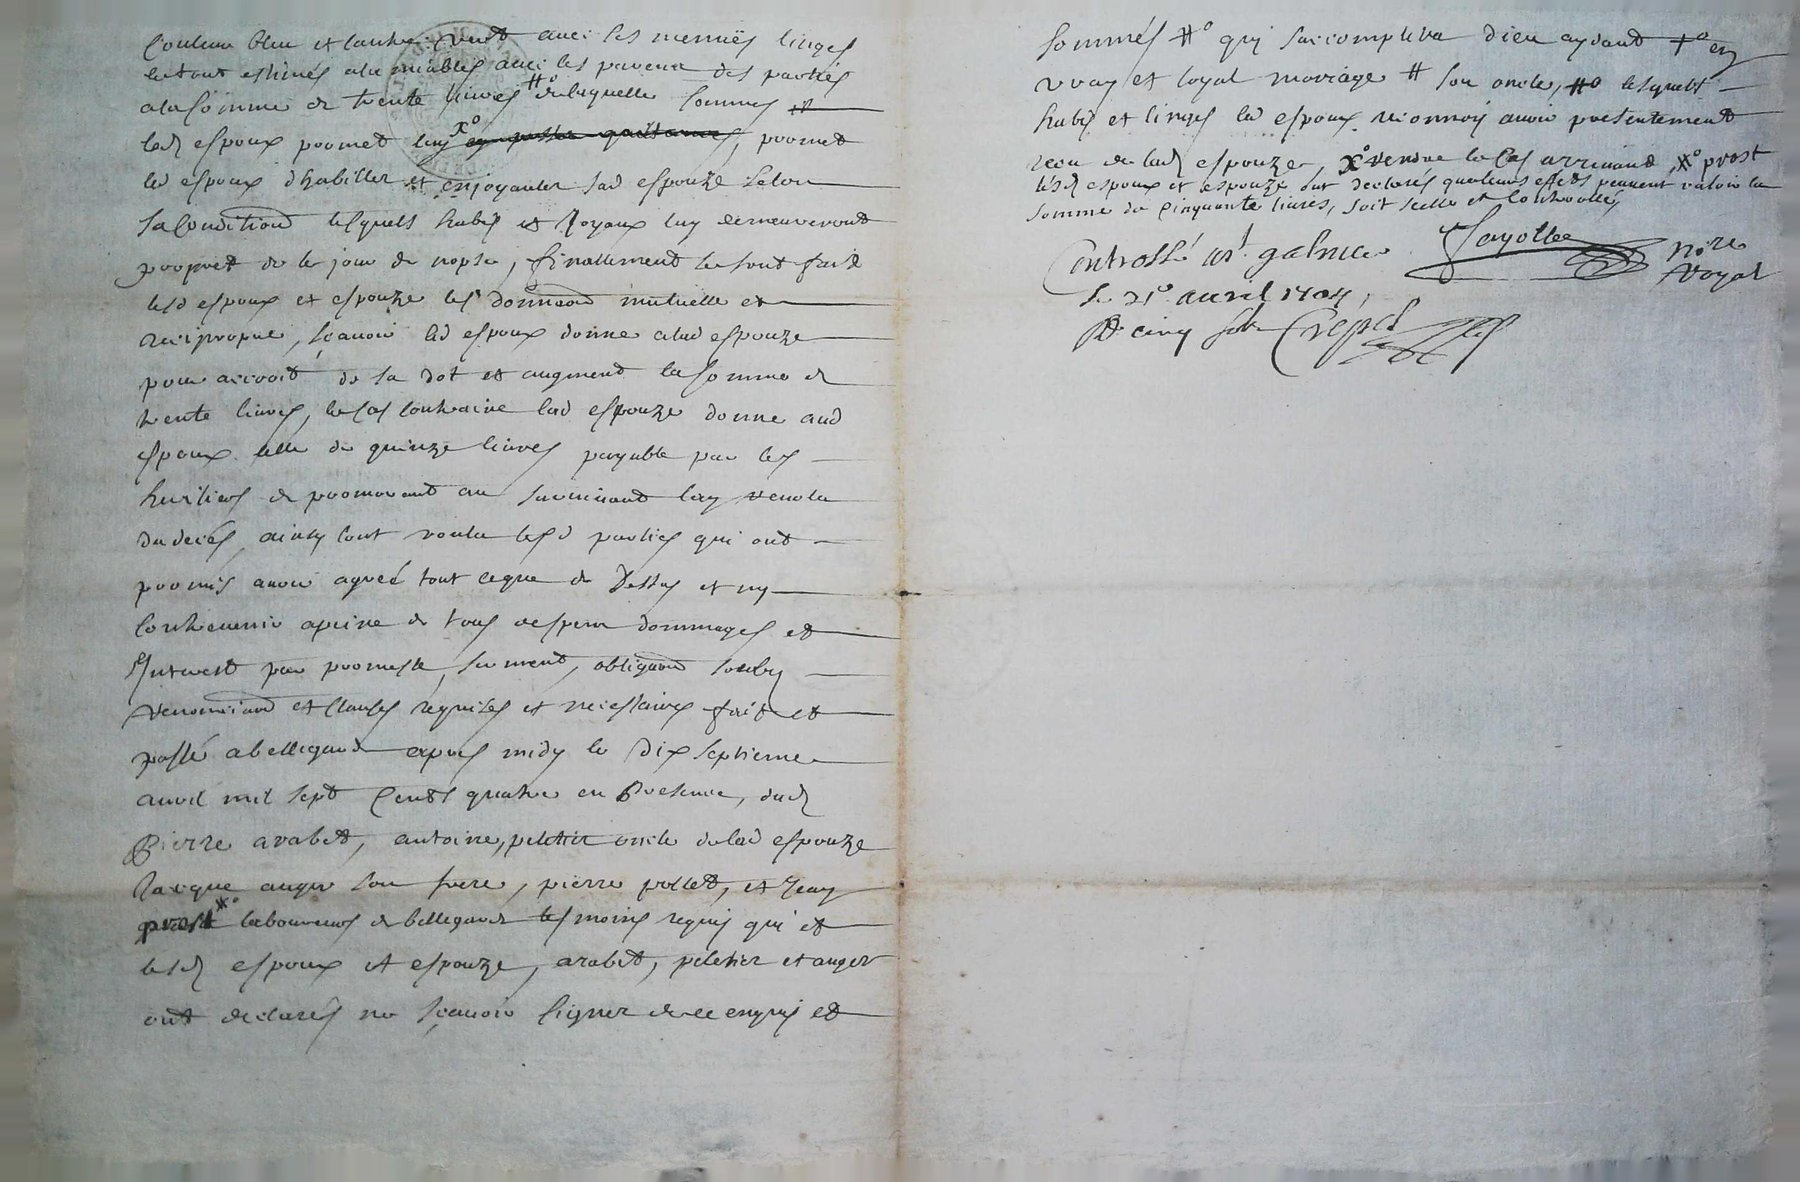 Couleur bleu et lautre vert avec ses menües linges
le tout estimés alamiables avec les parens des parties
a la somme de trente livres #o de laquelle somme #
led espoux promet luy Xo en passer quittance, promet
led espoux dhabiller et enjoyauler sad espouze selon
sa condition lesquels habis et Joyaux luy demeureront
propres de le jour de nopse, finallement se sont fait
lesd espoux et espouze les donnaon mutuelle et
reciproque, sçavoir led espoux donne a lad espouze
pour accroit de sa dot et augment la somme de
trente livres, le cas contraire lad espouze donne aud
espoux celle de quinze livres payable par les
heritiers du promourant au survivant luy venu
du decés, ainsy lont voulu lesd parties qui ont
promis avoir agreé tout ceque de Dessus et ny
contrevenir apeine de tous despens dommages et
Interest par promesse, serment, obligaon soubs
renonciaon et clauses requises et necessaires fait et
passé a bellegarde apres midy le Dix septieme
avril mil sept Cents quatre en Presence, dud
Pierre arabet, antoine, peletier oncle de lad espouze
Jacque auger son frere, pierre pollet, et Jean
prost Xo laboureurs de bellegarde tesmoins requis qui et
lesd espoux et espouze, arabet, peletier et auger
ont declarés ne sçavoir signer de ce enquis et
sommés #o qui saccomplira dieu aydant +o en
vray et loyal mariage # son oncle, #o lesquels
habis et linges led espoux reconnois avoir presentement
receu de lad espouze, Xo rendre le cas arrivant, Xo prost
lesd espoux et espouze ont declarés que leurs effets peuvent valoir la
somme de Cinquante livres, soit scellé et Controollé,
Fayolle nore
Royal
Controllé a st galmier
le 21e avril 1704,
R cinq sols Crespet